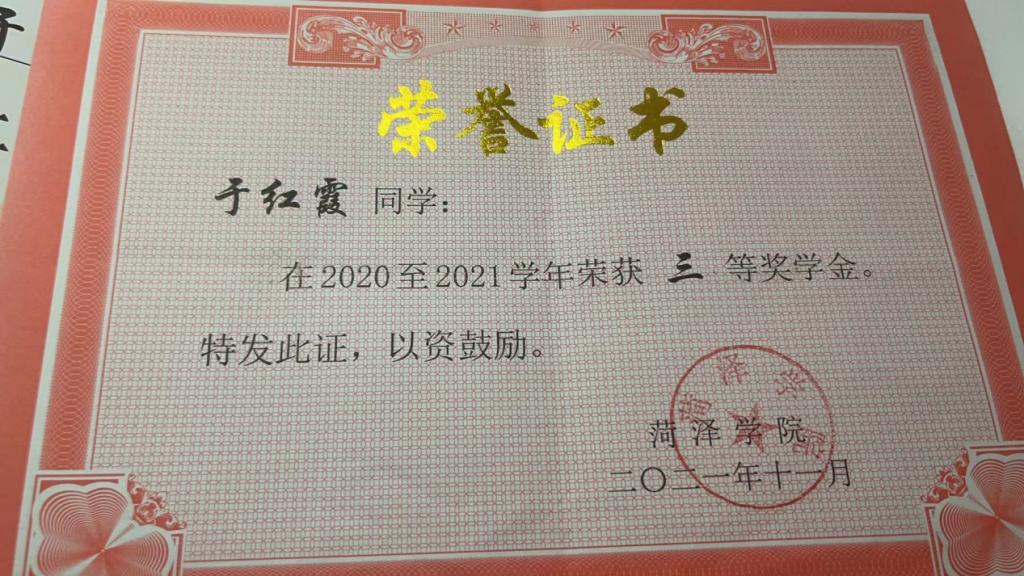 荣誉证书
于红霞 同学：
在2020至2021学年荣获 三 等奖学金。
特发此证，以资鼓励。
菏泽学院
菏泽学院
二〇二一年十一月